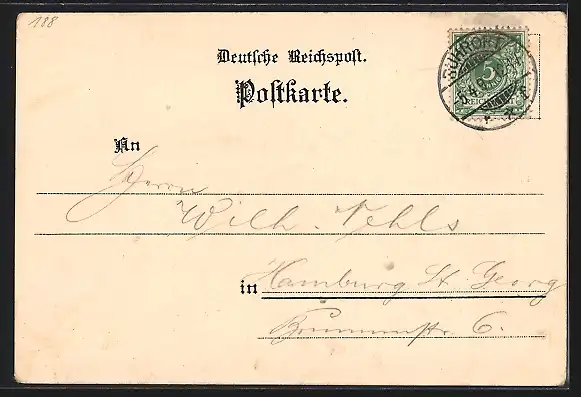 188
Deutsche Reichspost.
Postkarte.
RUHRORT
5
REICHSPOST
An
Herrn
Wilh. Vehls
in Hamburg St. Georg
Brennerstr. 6.